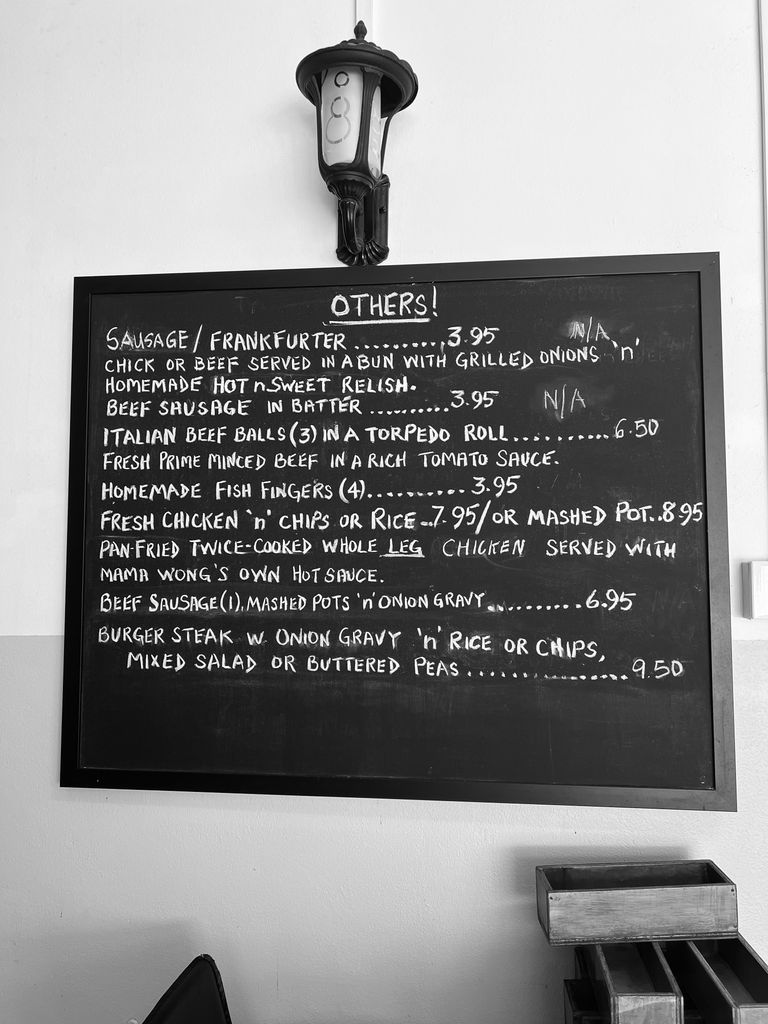 OTHERS!
SAUSAGE/FRANKFURTER ..........3.95 N/A
CHICK OR BEEF SERVED IN A BUN WITH GRILLED ONIONS 'n'
HOMEMADE HOT n SWEET RELISH.
BEEF SAUSAGE IN BATTER ..........3.95 N/A
ITALIAN BEEF BALLS (3) IN A TORPEDO ROLL...........6.50
FRESH PRIME MINCED BEEF IN A RICH TOMATO SAUCE.
HOMEMADE FISH FINGERS (4)..........3.95
FRESH CHICKEN 'n' CHIPS OR RICE..7.95/OR MASHED POT..8.95
PAN-FRIED TWICE-COOKED WHOLE LEG CHICKEN SERVED WITH
MAMA WONG'S OWN HOT SAUCE.
BEEF SAUSAGE(1), MASHED POTS 'n' ONION GRAVY...........6.95
BURGER STEAK W. ONION GRAVY 'n' RICE OR CHIPS,
MIXED SALAD OR BUTTERED PEAS.................9.50